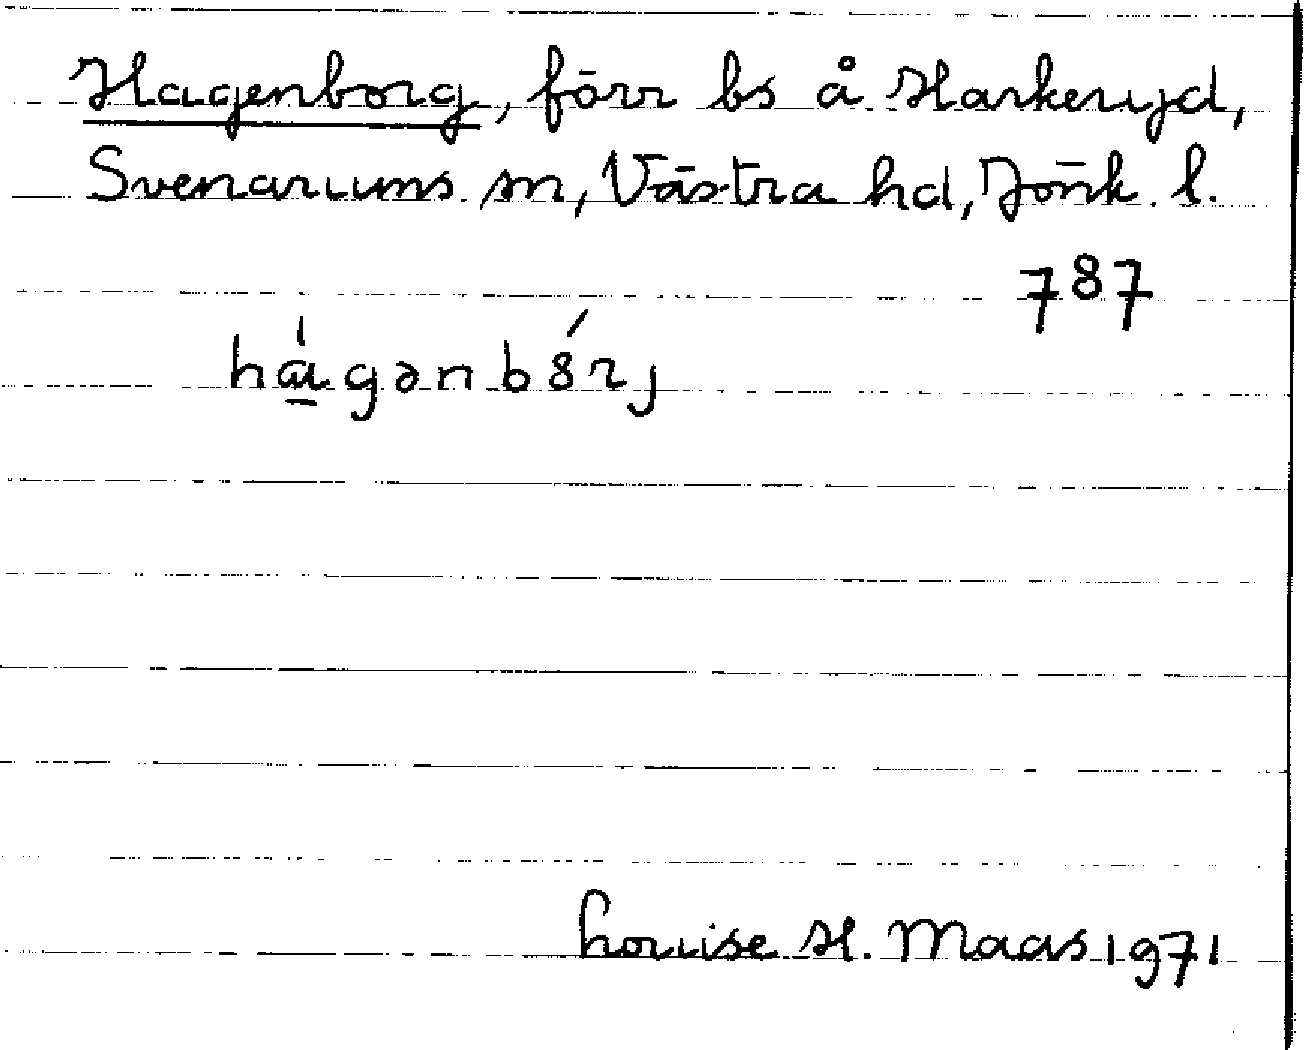 Hagenborg, förr bs å Harkeryd,
Svenarums sn, Västra hd, Jönk. l.
787
hágənbó̤rj
Louise H. Maas 1971